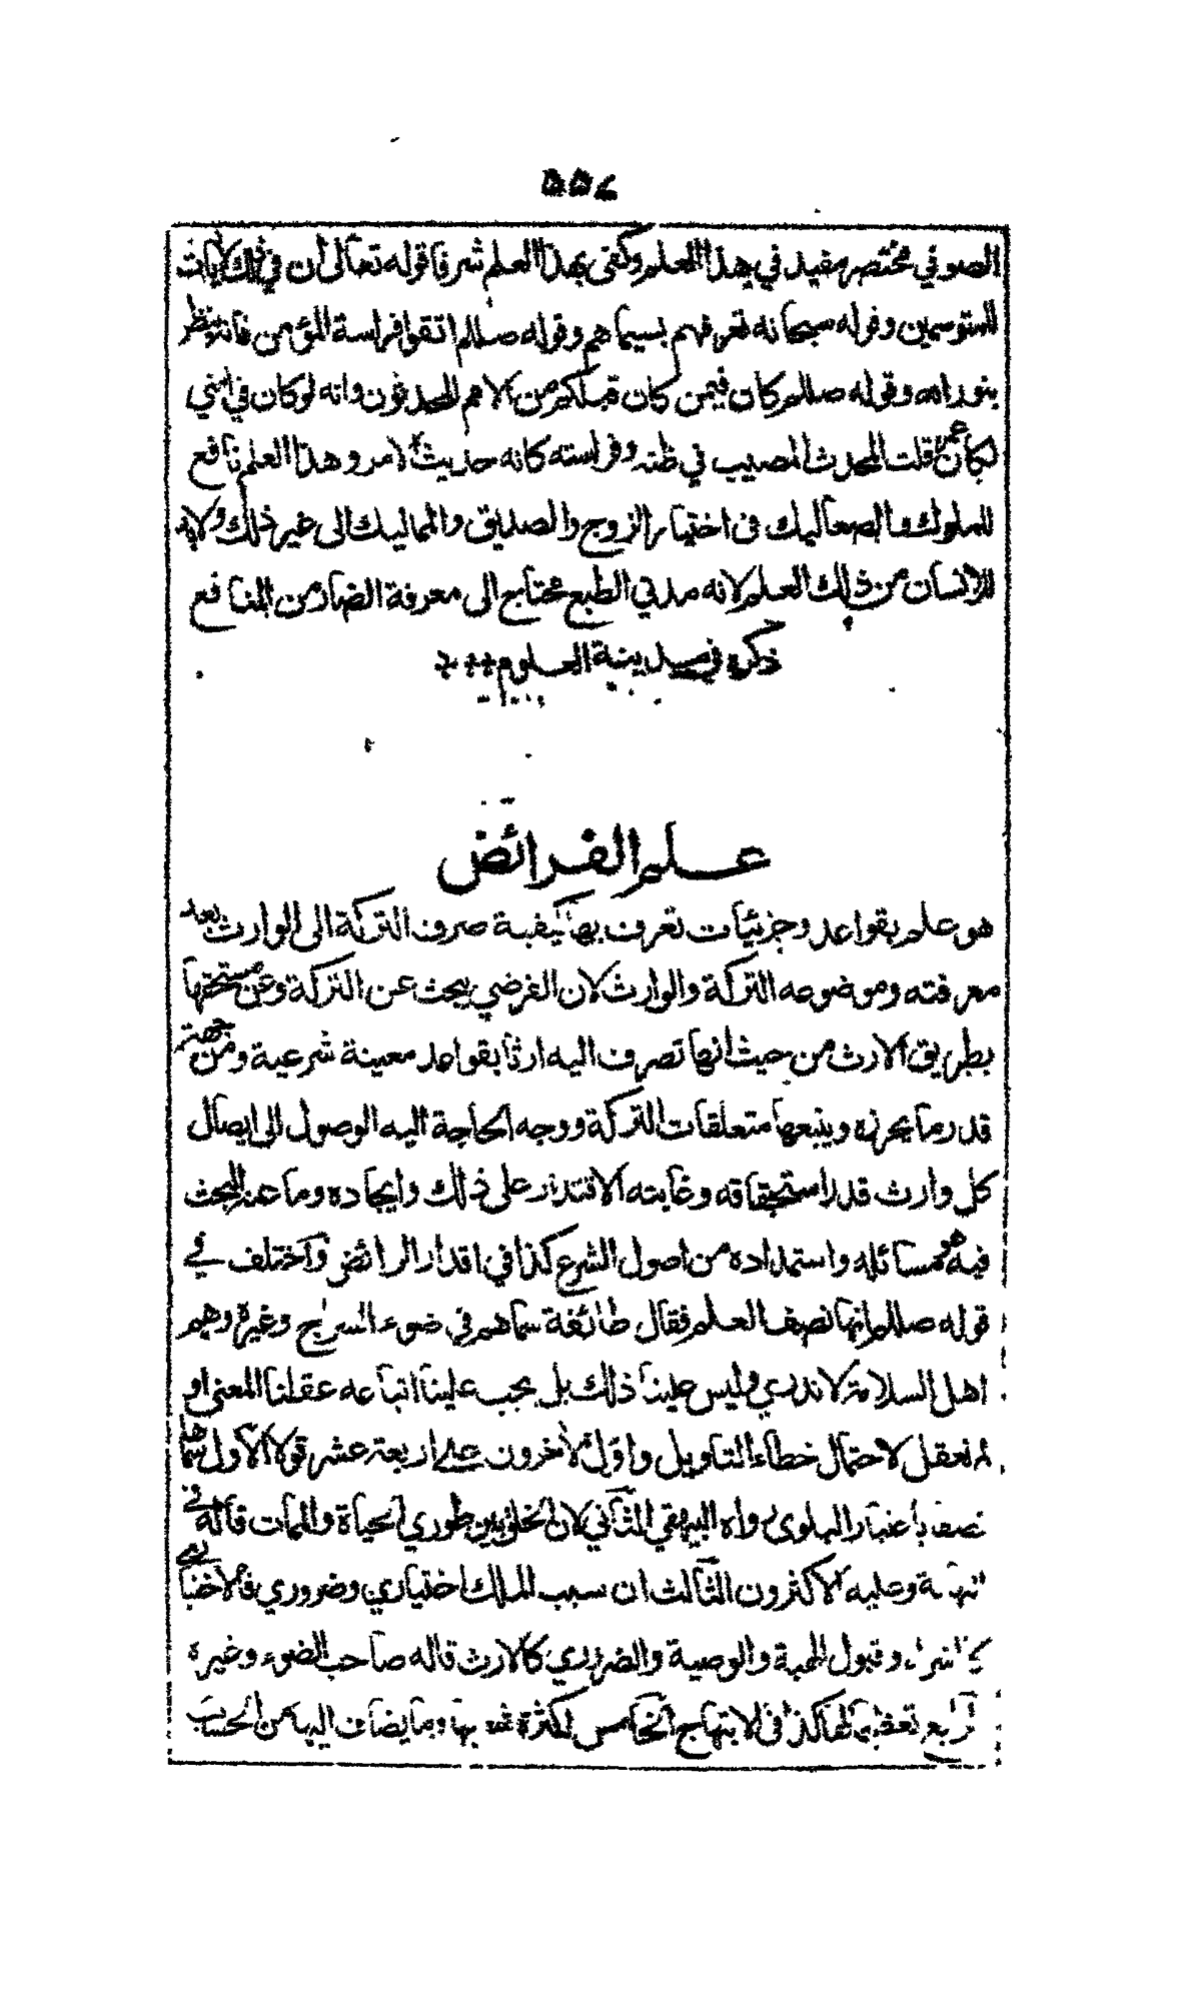 ٥٥٤
الصوفي مختصر مفيد في هذا العلم وكفى بهذا العلم شرفا قوله تعالى ان في ذلك لآيات
للمتوسمين وقوله سبحانه تعرفهم بسيماهم وقوله صللم اتقوا فراسة المؤمن فانه ينظر
بنور الله وقوله صللم كان فيمن كان قبلكم من الامم المحدثون وانه لو كان في امتي
لكان عمر قلت المحدث المصيب في ظنه وفراسته كانه حديث الامر وهذا العلم نافع
للملوك والصعاليك في اختيار الزوج والصديق والمماليك الى غير ذلك ولابد
للانسان من ذلك العلم لانه مدني الطبع محتاج الى معرفة الضار من المنافع
ذكره في مدينة العلوم
علم الفرائض
هو علم بقواعد وجزئيات تعرف بها كيفية صرف التركة الى الوارث بعد
معرفته وموضوعه التركة والوارث لان الفرضي يبحث عن التركة وعن مستحقها
بطريق الارث من حيث انها تصرف اليه ارثا بقواعد معينة شرعية ومن جهة
قدر ما يحرزه ويتبعها متعلقات التركة ووجه الحاجة اليه الوصول الى ايصال
كل وارث قدر استحقاقه وغايته الاقتدار على ذلك وايجاده وما عنه البحث
فيه هو مسائله واستمداده من اصول الشرع كذا في اقدار الرائض واختلف في
قوله صللم انها نصف العلم فقال طائفة سماهم في ضوء السراج وغيره وهم
اهل السلامة لا ندري وليس علينا ذلك بل يجب علينا اتباعه عقلنا المعنى او
لم نعقل لاحتمال خطاء التاويل واول الآخرون على اربعة عشر قولا الاول سماها
نصفا باعتبار البلوى رواه البيهقي الثاني لان الخلق بين طوري الحياة والممات قاله في
النهاية وعليه الاكثرون الثالث ان سبب الملك اختياري وضروري فالاختياري
كالشراء وقبول الهبة والوصية والضروري كالارث قاله صاحب الضوء وغيره
الرابع تعظيما لها كذا في الابتهاج الخامس لكثرة شعبها وما يضاف اليها من الحساب